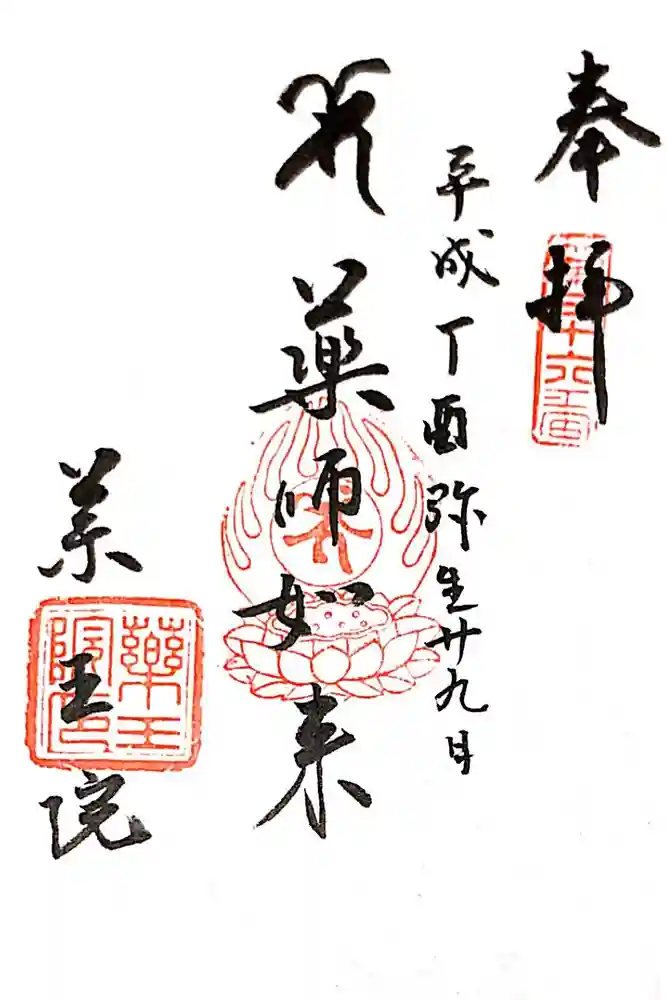 奉拝
平成丁酉弥生廿九日
薬師如来
薬王院
薬王院印